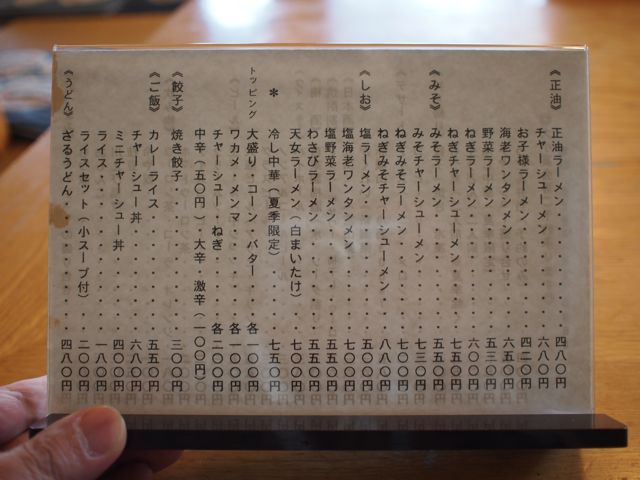 《正油》 正油ラーメン・・・・・・四八〇円
チャーシューメン・・・・・六八〇円
お子様ラーメン・・・・・四二〇円
海老ワンタンメン・・・・・六五〇円
野菜ラーメン・・・・・・五三〇円
ねぎラーメン・・・・・・六〇〇円
ねぎチャーシューメン・・・・七五〇円
《みそ》 みそラーメン・・・・・・五五〇円
みそチャーシューメン・・・・七三〇円
ねぎみそラーメン・・・・・七〇〇円
ねぎみそチャーシューメン・・八八〇円
《しお》 塩ラーメン・・・・・・・五〇〇円
塩海老ワンタンメン・・・・七〇〇円
塩野菜ラーメン・・・・・五五〇円
わさびラーメン・・・・・五五〇円
天女ラーメン（白まいたけ）・・七〇〇円
＊ 冷し中華（夏季限定）・・・・七五〇円
トッピング 大盛り・コーン・バター・・各一〇〇円
ワカメ・メンマ・・・・・各一〇〇円
チャーシュー・ねぎ・・・・各二〇〇円
中辛（五〇円）・大辛・激辛（一〇〇円）
《餃子》 焼き餃子・・・・・・・三〇〇円
《ご飯》 カレーライス・・・・・・五五〇円
チャーシュー丼・・・・・六八〇円
ミニチャーシュー丼・・・・四〇〇円
ライス・・・・・・・・一八〇円
ライスセット（小スープ付）・・二〇〇円
《うどん》 ざるうどん・・・・・・・四八〇円